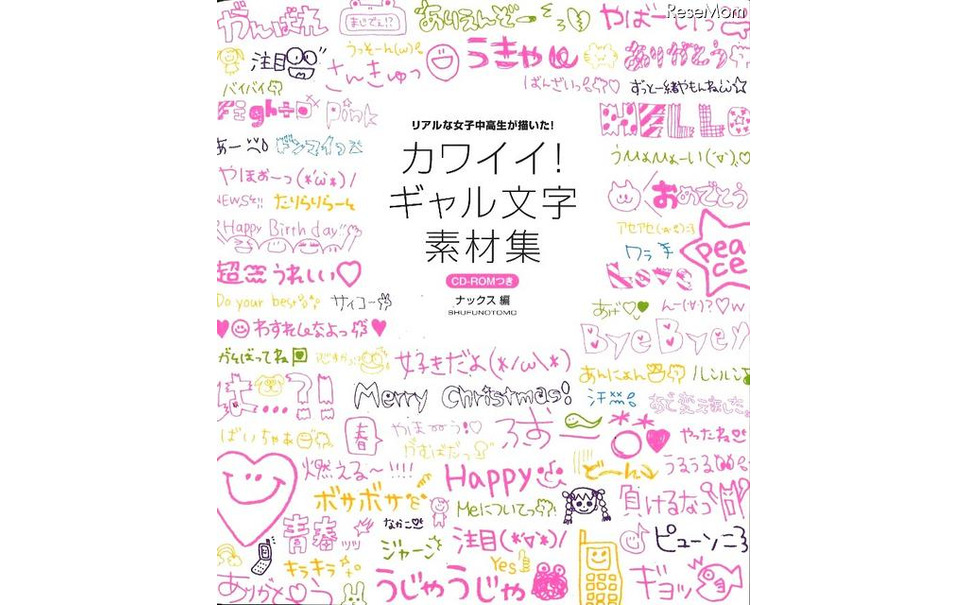 ReseMom
がんばれ
まじでん!?
ありえんぞー
やばーいっ
注目
うっそーん(ω)
うきゃ
ありがとう
さんきゅっ
バイバイ
ばんざいっ
ずっと一緒やもんね
Fight
Pink
HELLO
リアルな女子中高生が描いた!
カワイイ!
ギャル文字
素材集
CD-ROMつき
ナックス 編
SHUFUNOTOMO
あー
ドンマイっ
うひょひょーい(・∀・)
やほぉーっ(*'ω'*)/
NEWS
たりらりらーん
おめでとう
Happy Birthday
アセアセ
ワラ
Peace
超
うれしい♡
Love
Do your best
サイコー
あげ
んー(-ω-)?♡w
わすれんなよっ
Bye Bye
がんばってね
好きだよ(*/ω\*)
あんにょん
ルンルン
は…?!
Merry Christmas!
汗
ばいちゃぁ
春
やほーう!♡
やったね
燃える~!!!!
Happy
ど~ん
うるうる
ボサボサ
Meについてっ
負けるなっ
青春ッッ
なかこ
ジャーン
注目(*・∀・*)/
ピューン
キラキラ
Yes
ありがと
うじゃうじゃ
ギョッ